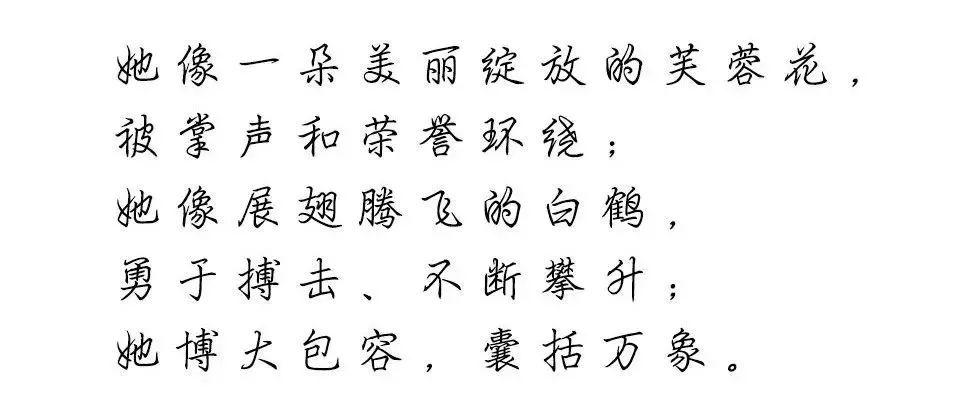 她像一朵美丽绽放的芙蓉花，
被掌声和荣誉环绕；
她像展翅腾飞的白鹤，
勇于搏击、不断攀升；
她博大包容，囊括万象。